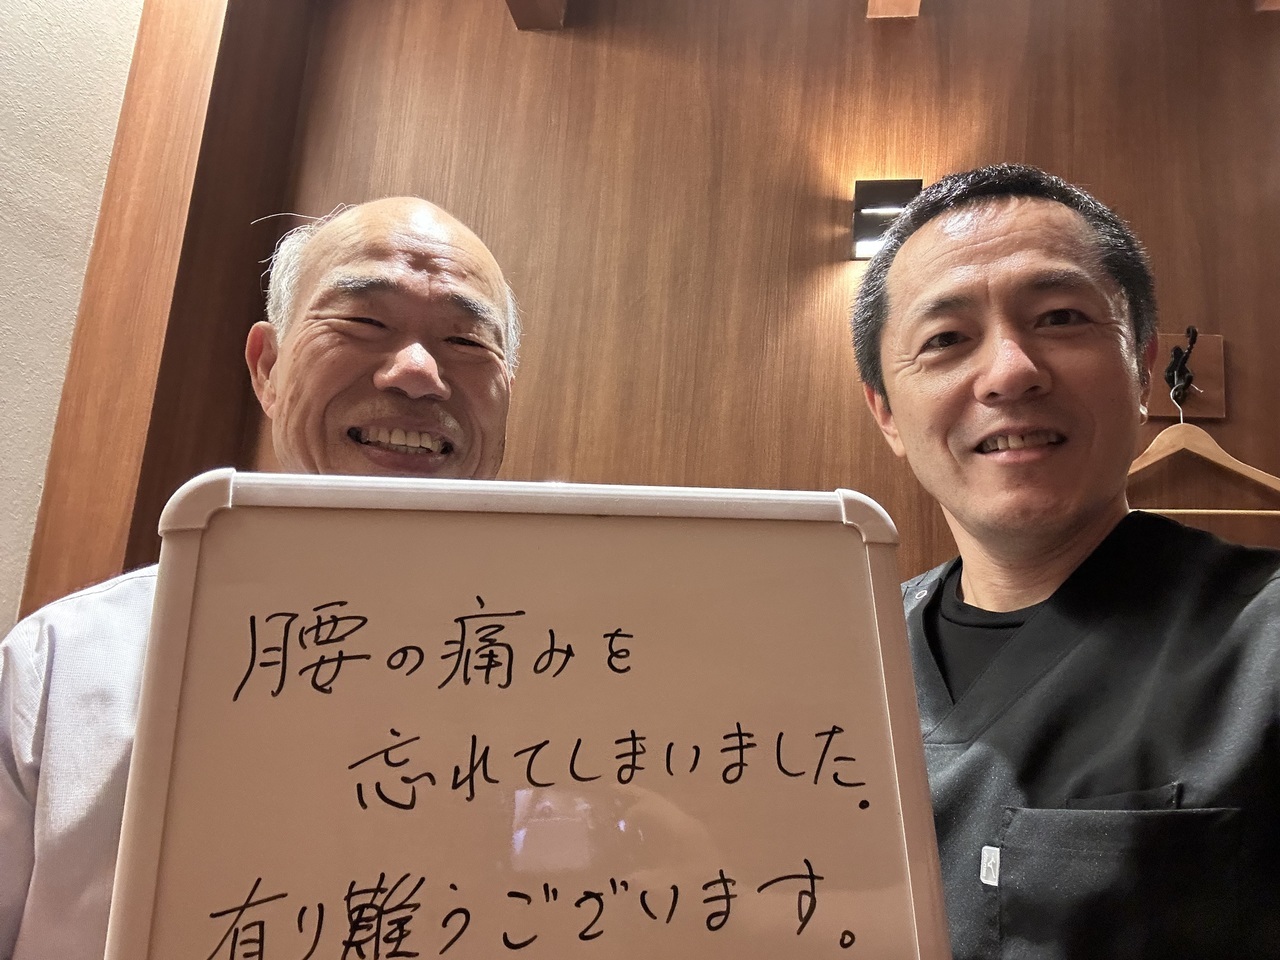 腰の痛みを
忘れてしまいました.
有り難うございます。